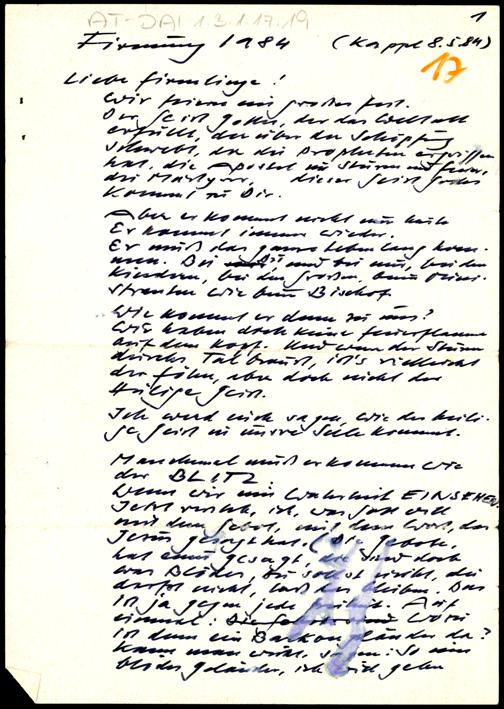 AT-DAI 1.3.1.17.19
1
Firmung 1984 (Kappl 8.5.84)
17
Liebe Firmlinge!
Wir feiern ein großes Fest.
Der Geist Gottes, der das Weltall
erfüllt, der über der Schöpfung
schwebt, der die Propheten ergriffen
hat, die Apostel in Sturm und Feuer,
die Märtyrer, dieser Geist Gottes
kommt zu Dir.
Aber er kommt nicht nur heute
Er kommt immer wieder.
Er muß das ganze Leben lang kom-
men. Bei Dir und bei mir, bei den
Kindern, bei den Großen, beim Mini-
stranten wie beim Bischof
Wie kommt er denn zu uns?
Wir haben doch keine Feuerflamme
auf dem Kopf. Und wenn der Sturm
durchs Tal braust, ist's vielleicht
der Föhn, aber doch nicht der
Heilige Geist.
Ich werd euch sagen, wie der heili-
ge Geist in unsre Seele kommt.
Manchmal muß er kommen wie
der BLITZ.
Wenn wir eine Wahrheit EINSEHEN.
Jetzt versteh, ich, was Gott will
mit dem Gebot, mit dem Wort, das
Jesus gesagt hat. (Die Gebote,
hat einer gesagt, sind doch
was Blödes, du sollst nicht, du
darfst nicht, laß das bleiben. Das
ist ja gegen jede Freiheit. Auf
einmal: Wozu
ist denn ein Balkongeländer da?
Kann man nicht sagen: So ein
blödes Geländer, ich will gehen